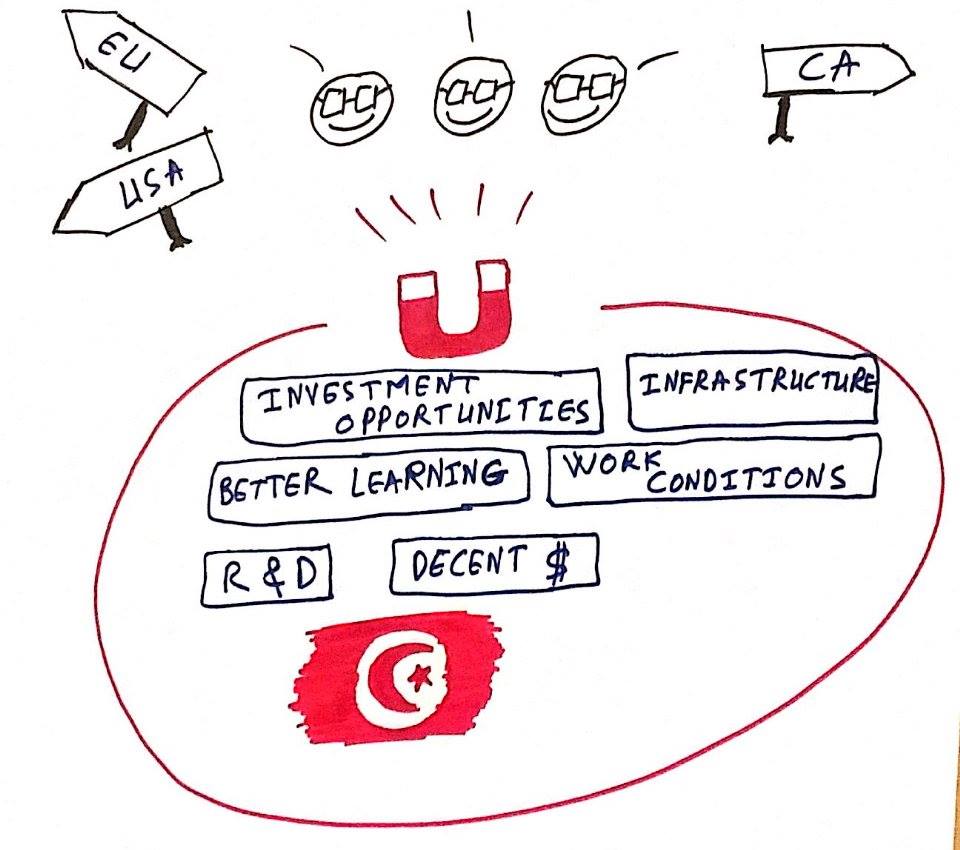 EU
CA
USA
INVESTMENT
OPPORTUNITIES
INFRASTRUCTURE
BETTER LEARNING
WORK
CONDITIONS
R & D
DECENT $